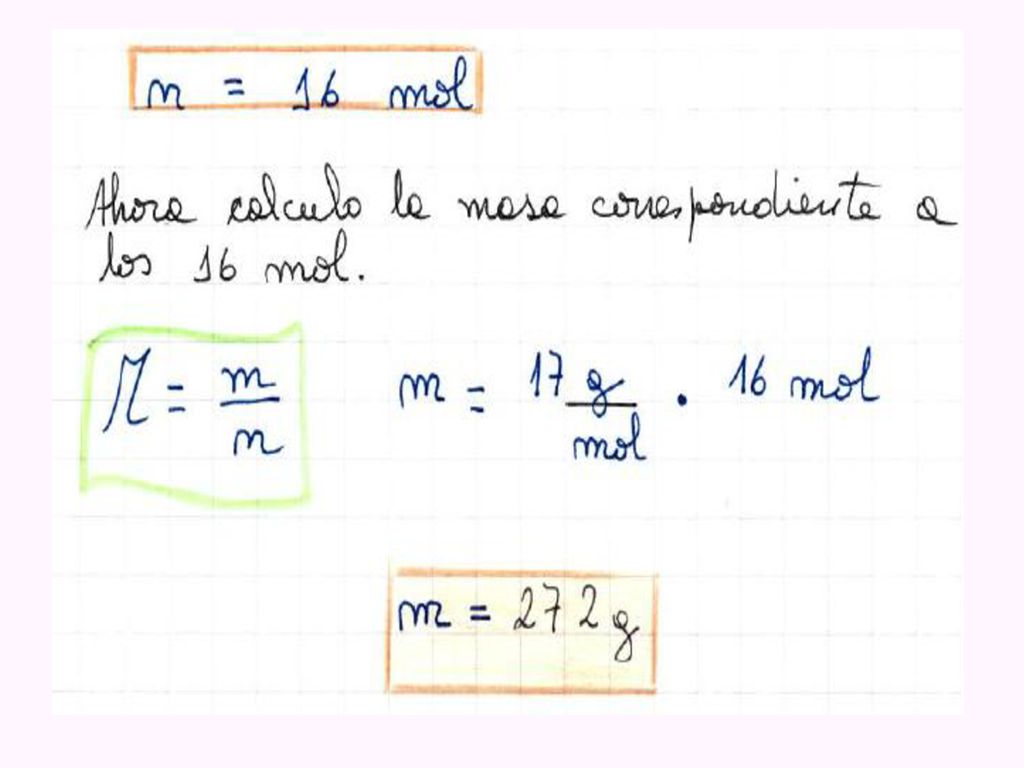 n = 16 mol
Ahora calculo la masa correspondiente a
los 16 mol.
M = m/n m = 17 g/mol · 16 mol
m = 272 g